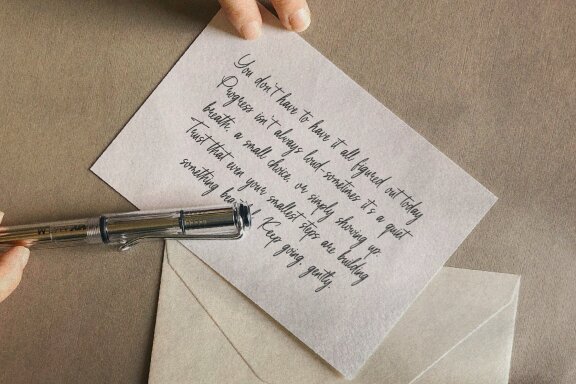 You don't have to have it all figured out today
Progress isn't always loud-sometimes it's a quiet
breath, a small choice, or simply showing up.
Trust that even your smallest steps are building
something Keep going, gently.